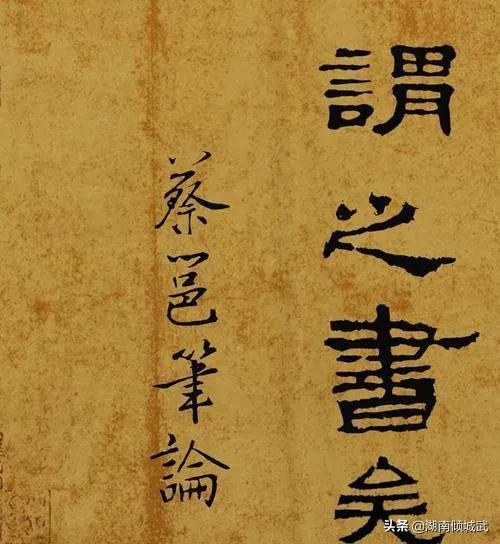 謂之書矣
蔡邕筆論
头条 @湖南倾城武